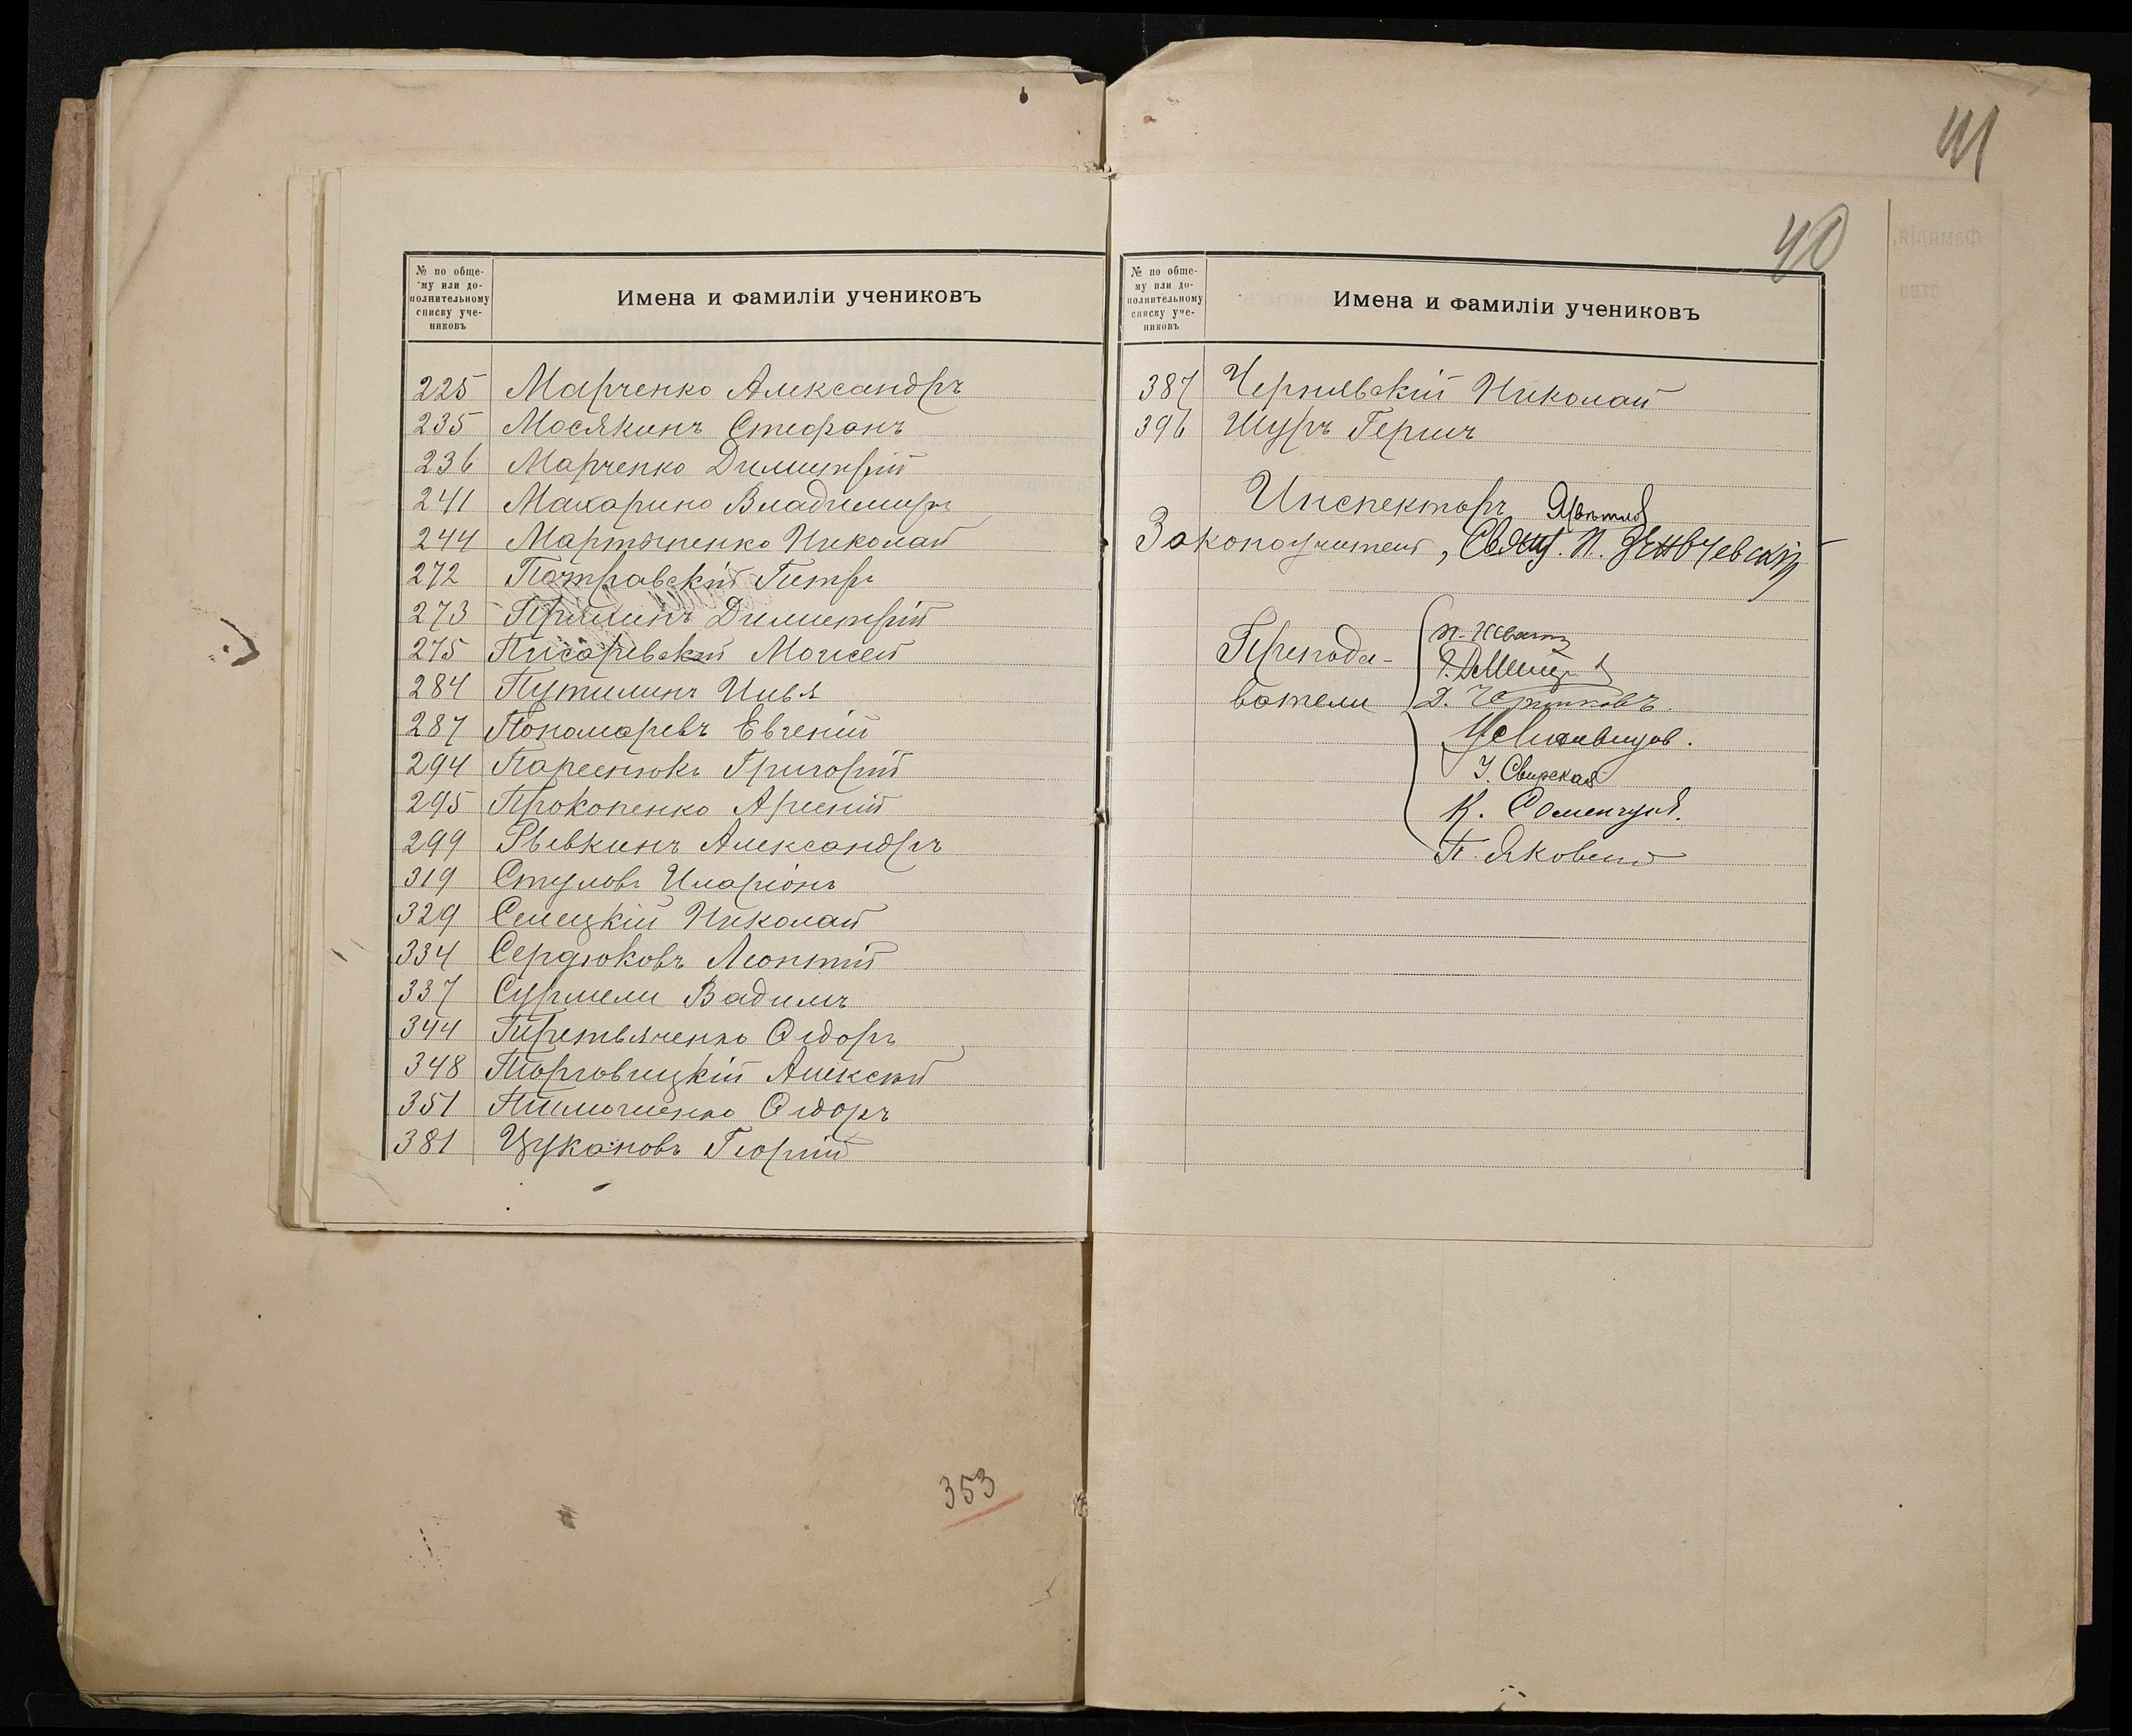 № по обще-
му или до-
полнительному
списку уче-
никовъ
Имена и фамиліи учениковъ
225 Марченко Александръ
235 Мосякинъ Стефанъ
236 Марченко Димитрій
241 Махарино Владимиръ
244 Мартыненко Николай
272 Петровскій Петръ
273 Димитрій
275 Писаревскій Моисей
284 Путилинъ Илья
287 Пономаревъ Евгеній
294 Григорій
295 Прокопенко Арсеній
299 Рывкинъ Александръ
319 Стуловъ Иларіонъ
329 Сенецкій Николай
334 Сердюковъ Леонтій
337 Сурмели Вадимъ
344 Ѳедоръ
348 Торговицкій Алексѣй
351 Тимошенко Ѳедоръ
381 Цукановъ Георгій
353
41
40
№ по обще-
му или до-
полнительному
списку уче-
никовъ
Имена и фамиліи учениковъ
387 Чернявскій Николай
396 Шуръ Гершъ
Инспекторъ
Законоучитель, Свящ. П.
Препода-
ватели
Д.
І. Свирская
К.
П. Яковенко